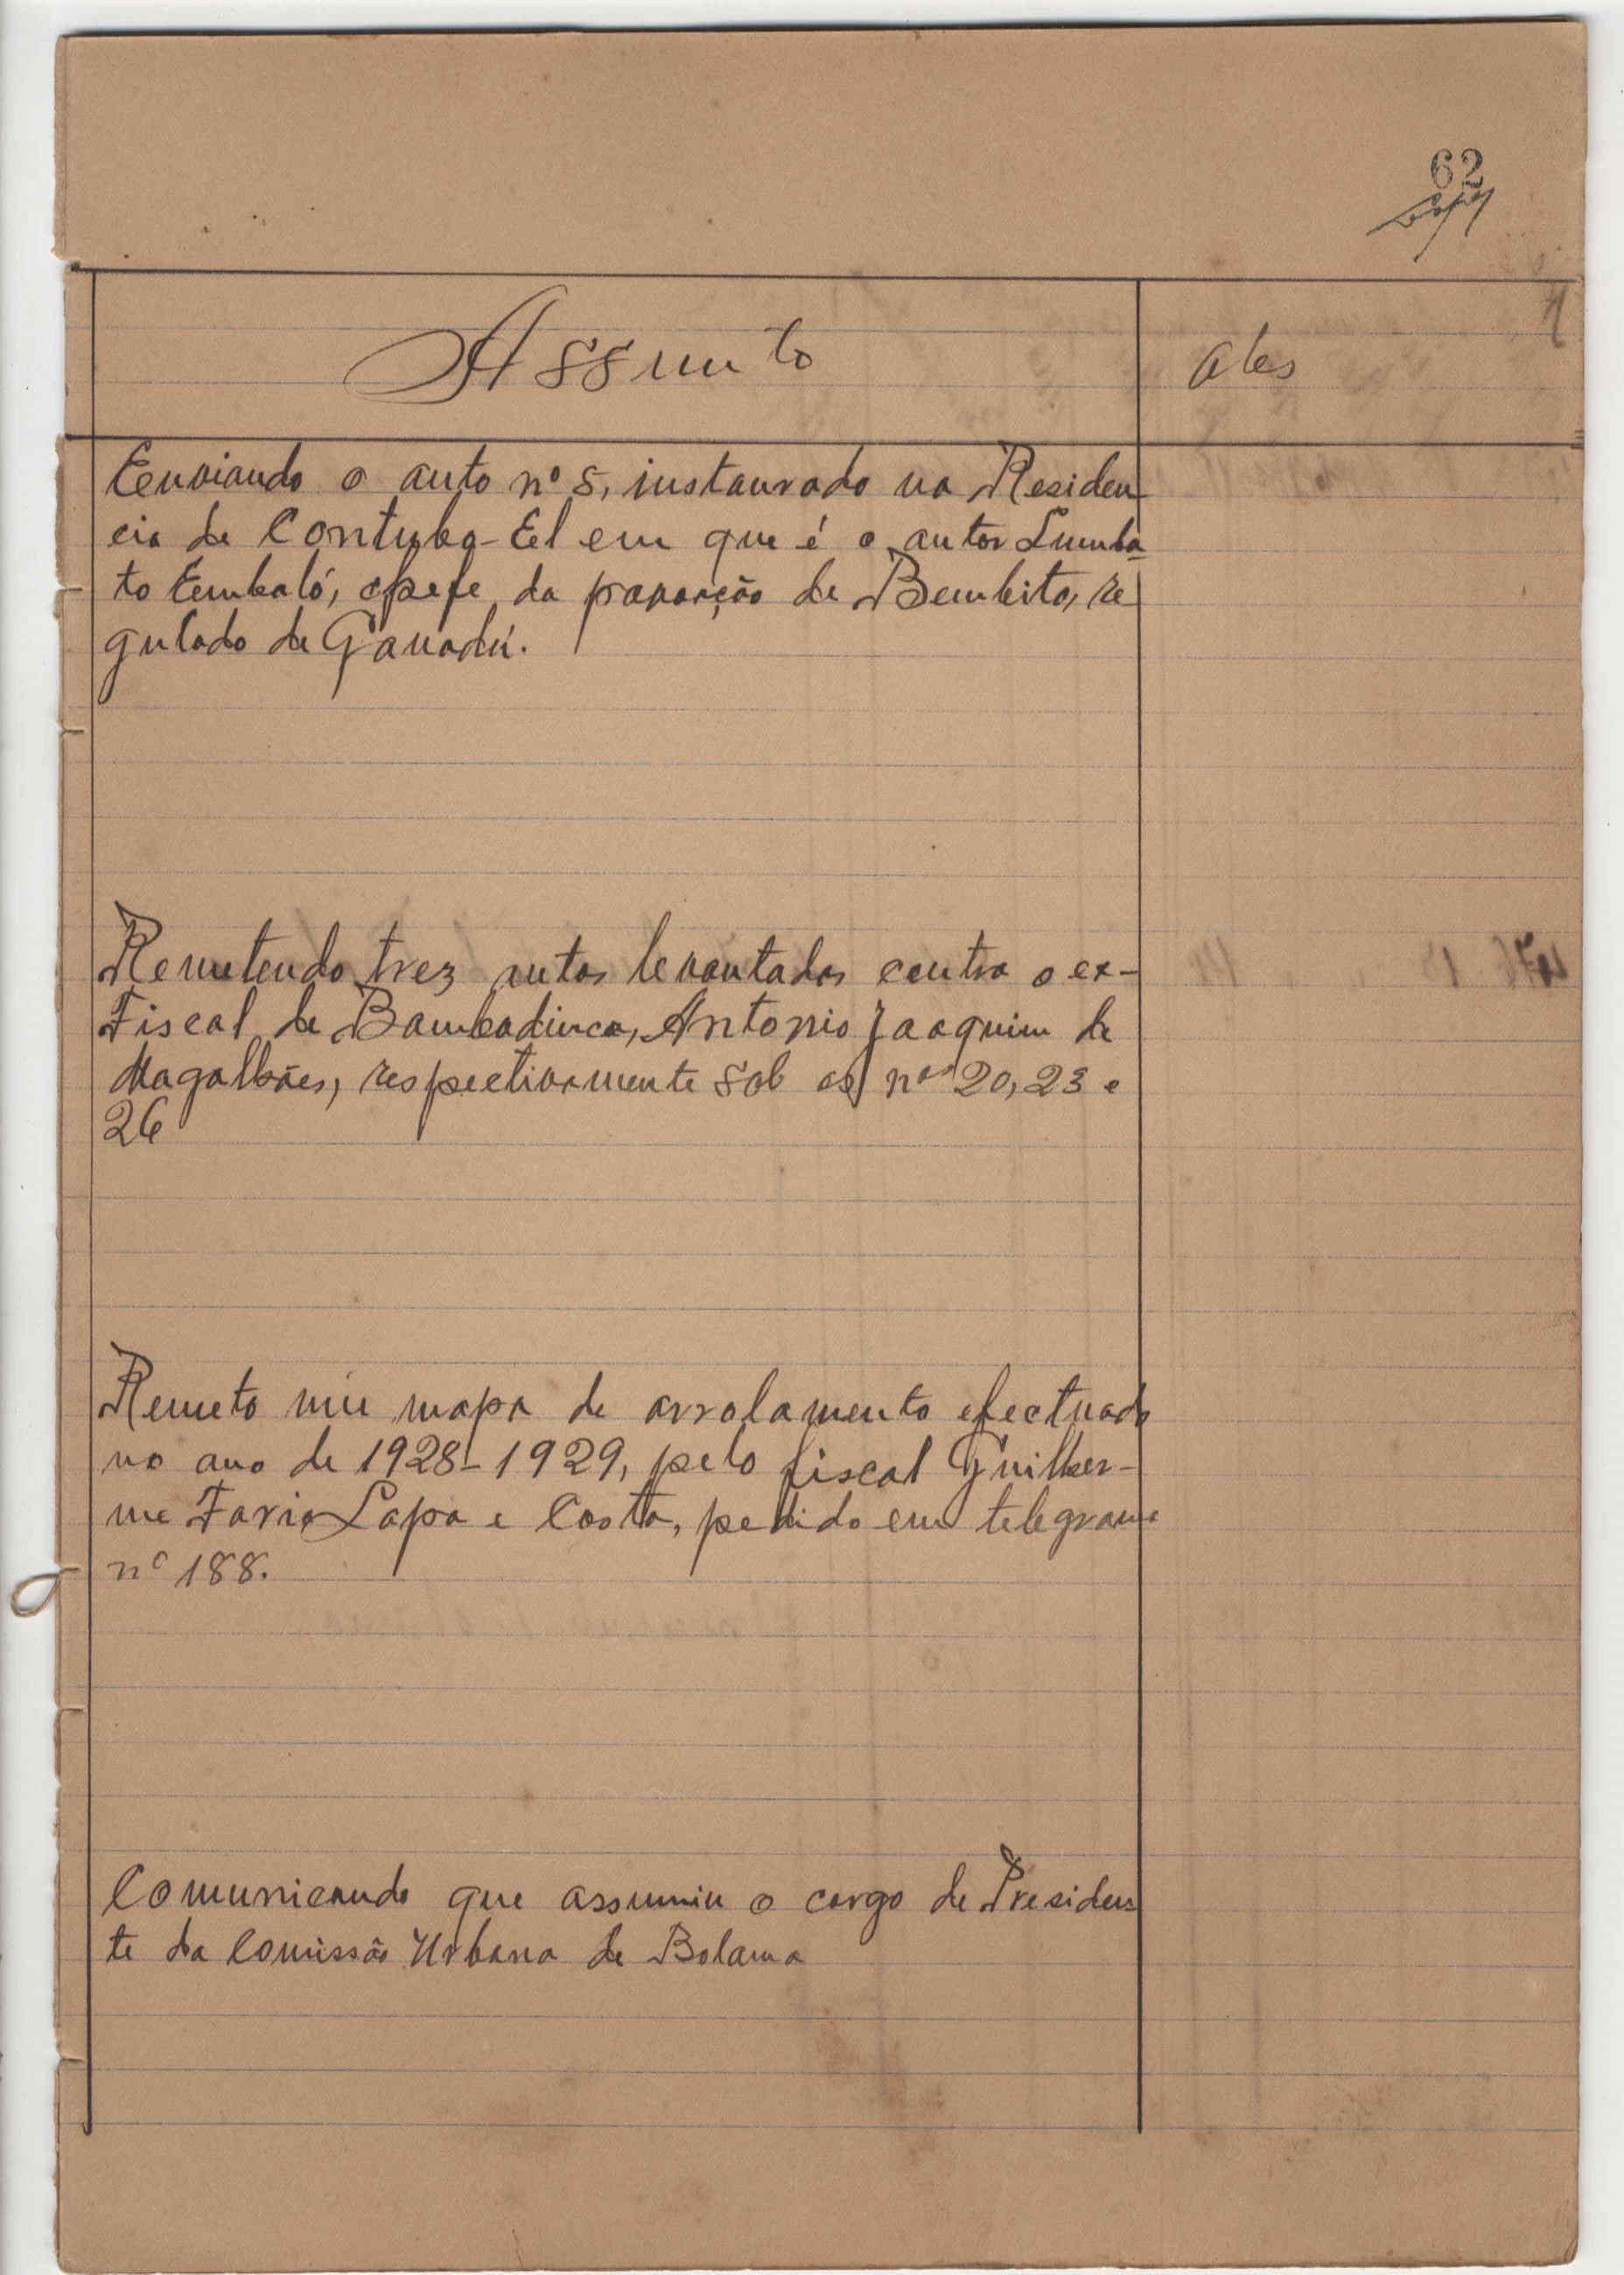 62
Assunto
Obs
Enviando o auto nº 5, instaurado na Residen
cia de Contuba-El em que é o autor Sumba
to Embaló, chefe da pavoação de Bembito, re
gulado de Ganadú.
Remetendo trez autos levantados contra o ex-
Fiscal de Bambadinca, Antonio Joaquim de
Magalhães, respectivamente sob os nºs 20, 23 e
26
Remeto um mapa de arrolamento efectuado
no ano de 1928-1929, pelo fiscal Guilher-
me Faria Lapa e Costa, pedido em telegrama
nº 188.
Comunicando que assumiu o cargo de Presiden
te da Comissão Urbana de Bolama